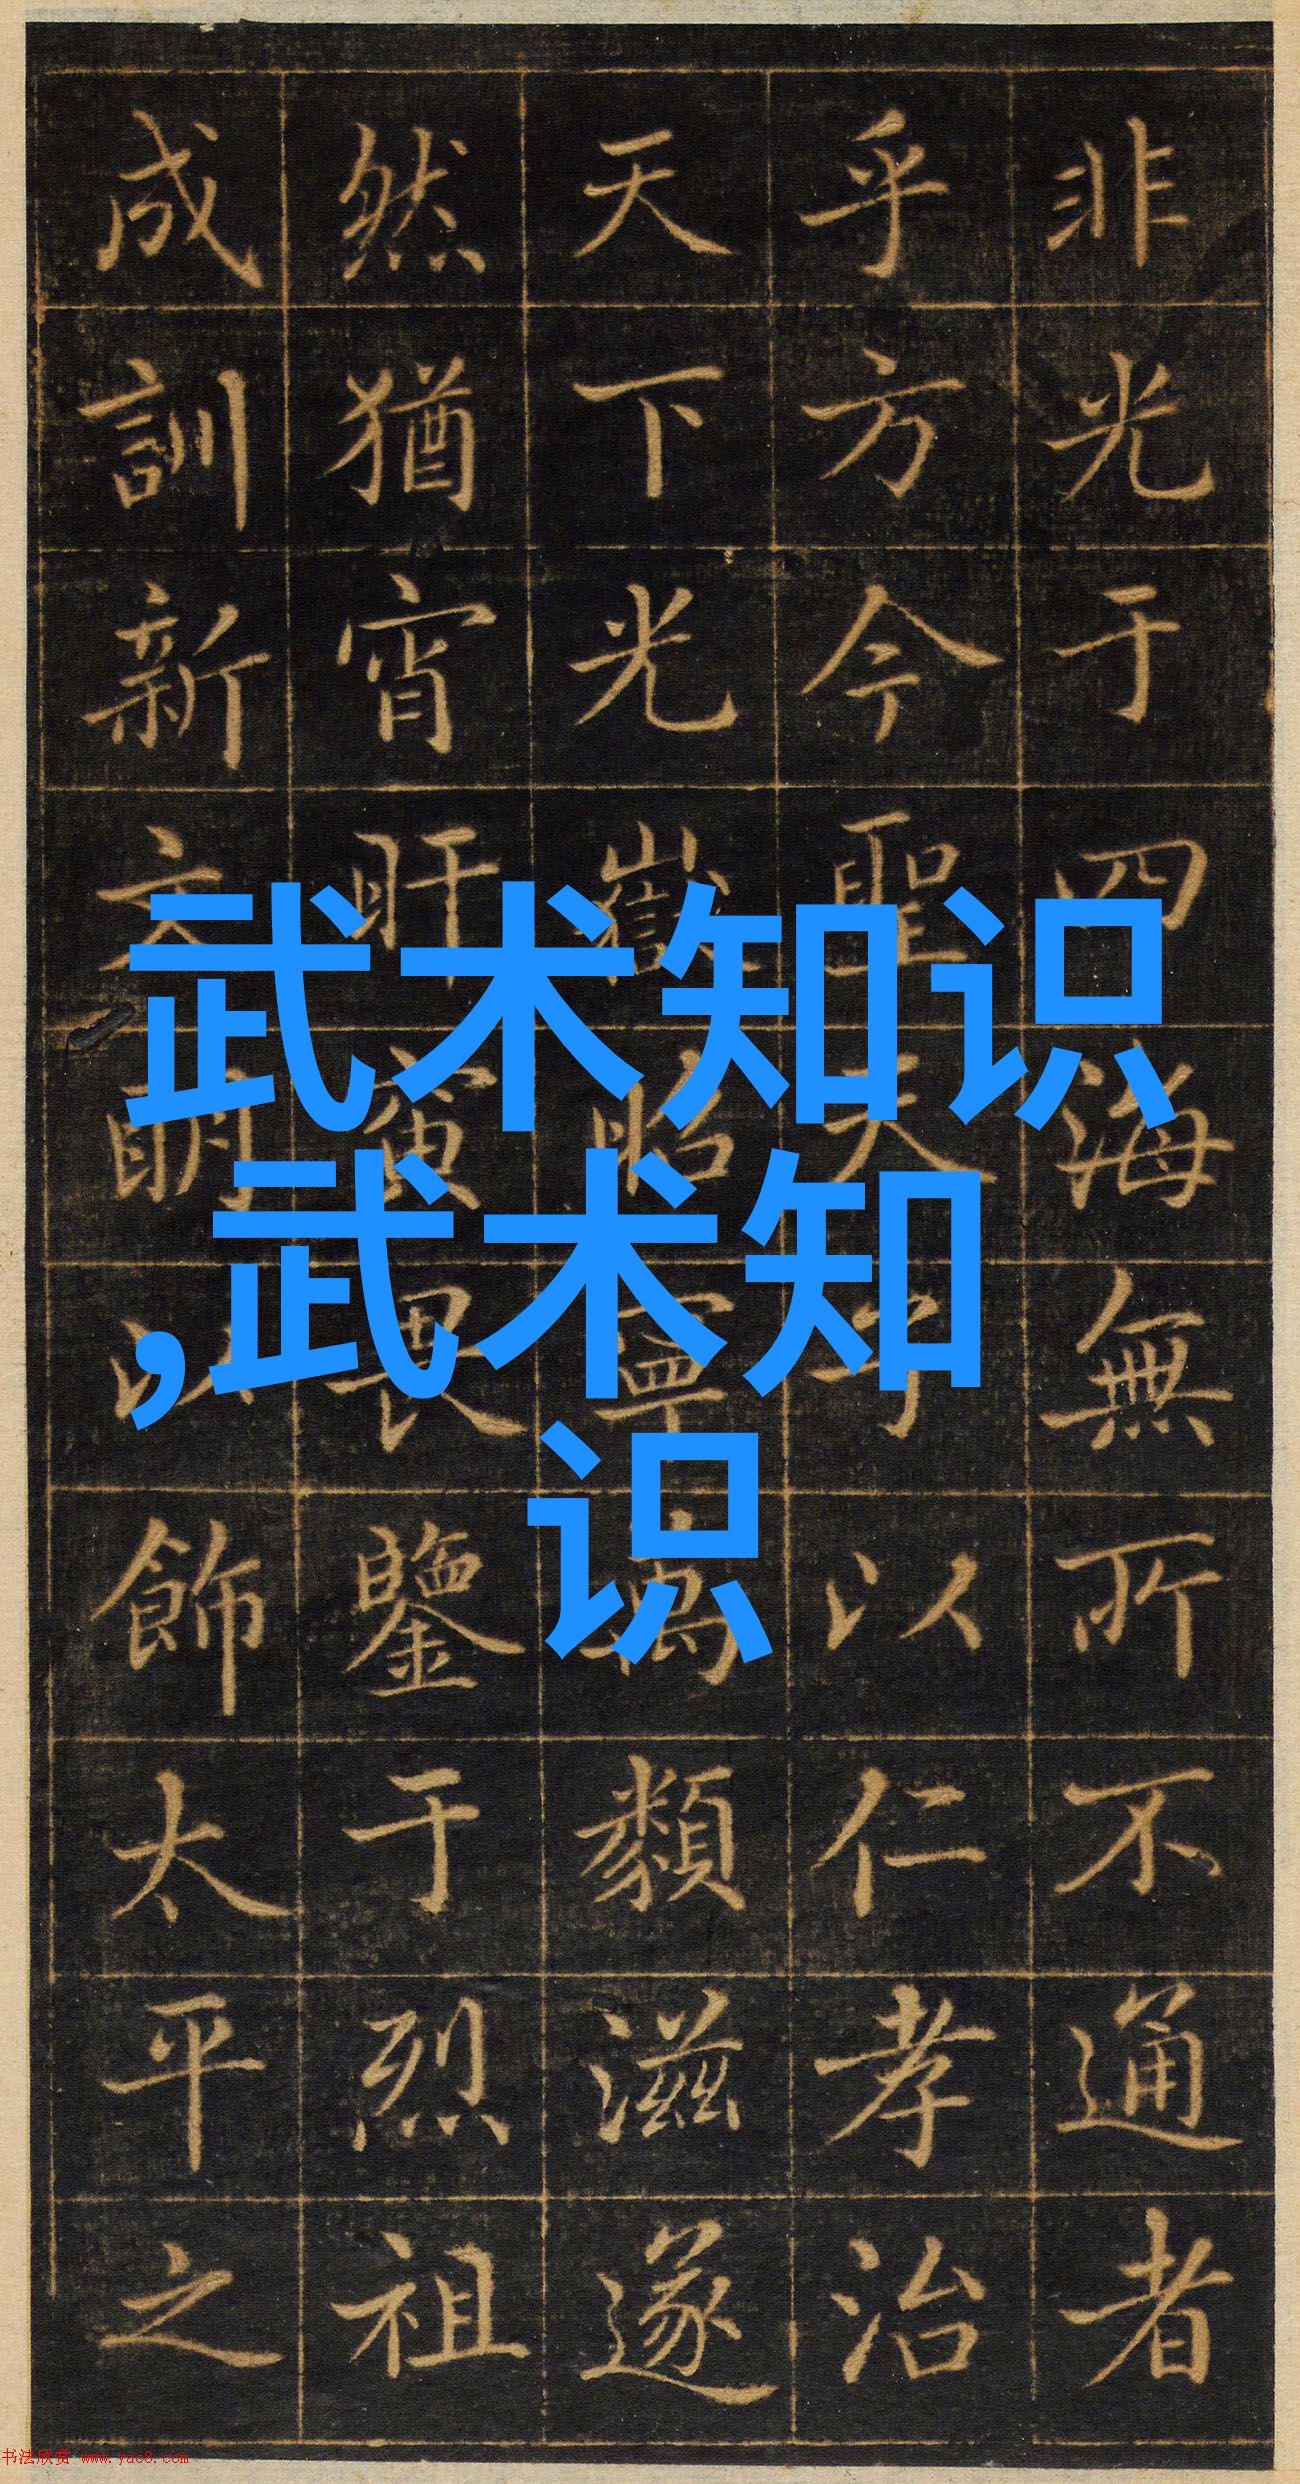 非光于四海無所不通者
乎方今聖天子以仁孝治
天下光嶽昭寧萬類滋遂
然猶宵旰寅畏鑒于烈祖
成訓新文明以飾太平之
武术知识
,武术知
识
书法欣赏 www.yac8.com